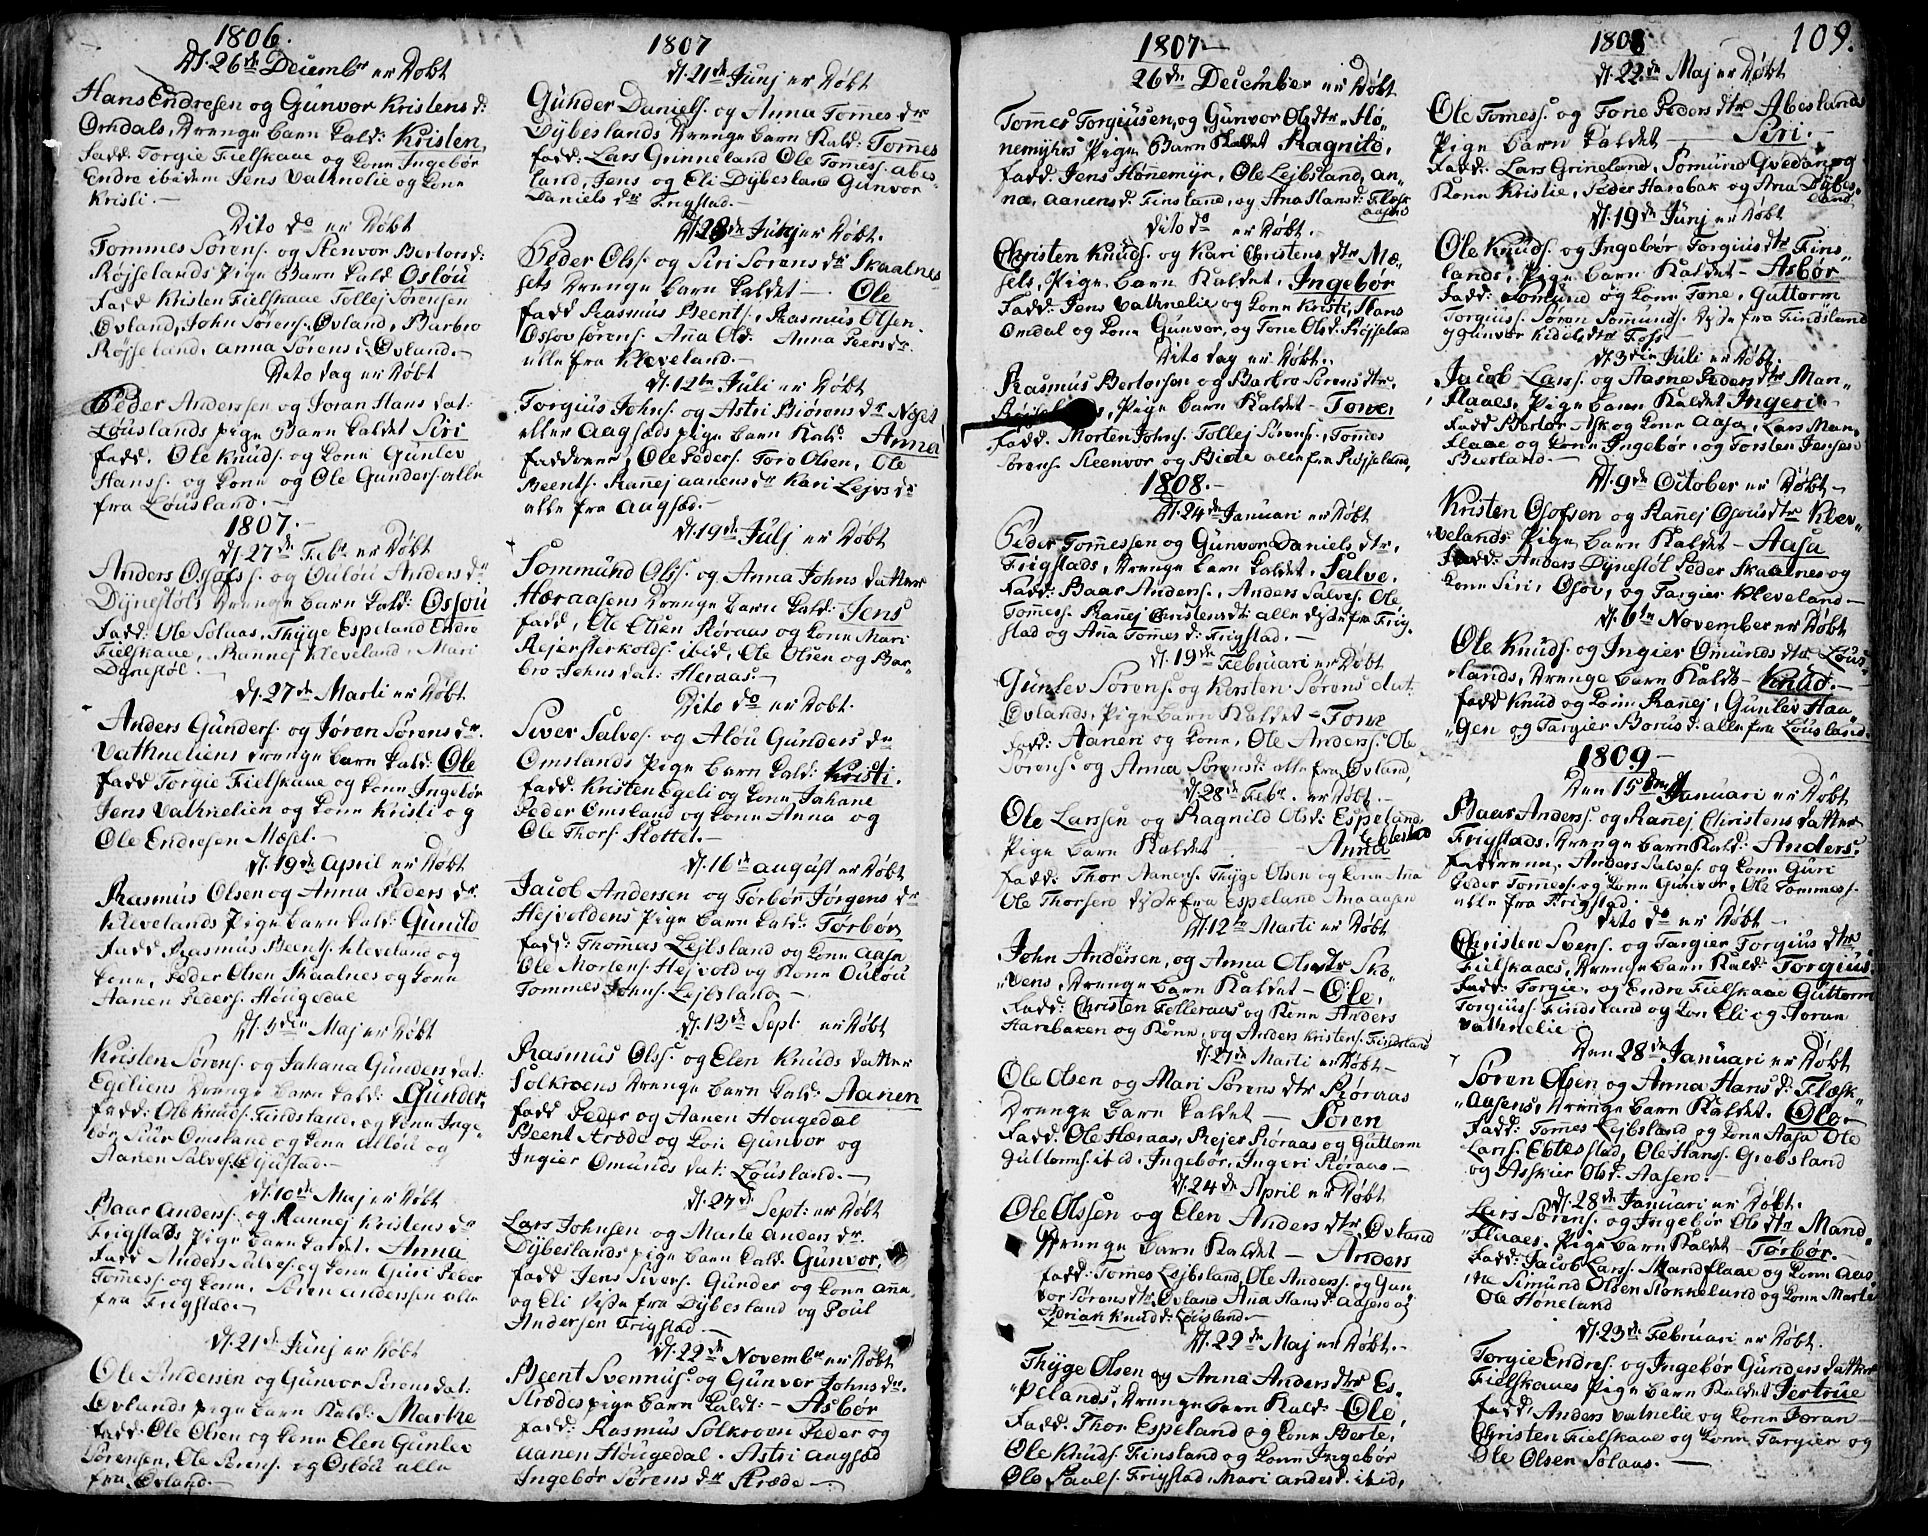 1806.
d. 26de Decembr er Døbt
Hans Endresen og Gunvor Kristens d:
Omdals, Drenge barn kald: Kristen,
fadd: Torgie Fielskaae og kone Ingebør
Endre ibidem Jens Vathnelie og kone
Kristi.-
Dito do er Døbt
Tommes Sørens. og Stenvor Bertors d:
Røjselands Pige Barn kald Oslou
fadd Kristen Fielskaae Tollej Sørensen
Øvland, John Sørens. Øvland, Barbro
Røjseland, anna Sørens d. Øvland.-
Dito dag er Døbt
Peder Anderssen og Joran Hans dat.
Lousl­ands pige Barn kaldet Siri
fadd. Ole Knuds. og kone Gunlev
Hanss. og kone og Ole Gunders. alle
fra Lousland.-
1807.-
d. 27de Febr. er Døbt
Anders Ossofs s. og Oulou Anders dr
Dynestøls Drenge barn kald: Ossou
fadd: Ole Solaas, Thyge Espeland Endre
Fielskaae, Rannej Kleveland, Mari
Dynestøl.-
d. 27de Marti er Døbt
Anders Gunders. og Jøren Sørens dr.
Vathneliens drenge barn kald: Ole
fadd Torgie Fielskaae og kone Ingebør
Jens Vathnelien og kone Kristi og
Ole Endresen Mæsel.-
d. 19de April er Døbt
Rasmus Olsen og Anna Peders dr.
Klevelands Pige barn kald: Gunild
fadd Rasmus Beents. Kleveland og
kone, Peder Olsen Skaalnes og kone
Aanen Peders. Hougedal
d. 3den Maj er Døbt
Kristen Sørens. og Johana Gunders dat.
Egeliens Drenge barn kald: Gunder,
fadd: Ole Knuds. Findsland, og kone Inge-
bør Siur Omsland og kone Allou og
Aanen Salves.
d. 10de Maj er Døbt
Baar Anders. og Rannej Kristens dr
Frigstads Pige barn kaldet. Anna
fadd Anders Salves. og kone Guri Peder
Tomess. og kone, Søren anderssen alle
fra Frigstad.-
d. 21de Junj er Døbt
Ole Andersen og Gunvor Sørens dat:
Øvlands pige barn kald: Marthe
fadd: Ole Olsen og kone Elen Gunlev
Sørensen, Ole Sørens. og Oslou alle
fra Øvland.-
1807
d. 21de Junj er Døbt
Gunder Daniels. og Anna Tommes dr
Dybeslands Drenge barn kald: Tommes
fadd: Lars Gunneland Ole Tomess. abes-
land, Jens og Eli Dybesland Gunvor
Daniels dr Frigstad.-
d. 28de Junj er Døbt.
Peder Olss. og Siri Sørens dr Skaalnes
sets Drenge barn kaldet - Ole
fadd Rasmus Beents. Rasmus Olsen.
Ossov Sørens. Ana Olsd. Anna Peers dr.
alle fra Kleveland.-
d. 12te Juli er Døbt
Torgius Johns. og Astri Biørens dr Noset
eller Aagsæds pige barn kald. Anna
faddrene, Ole Peders. Tore Olsen, Ole
Beents. Rannej aanens dr Kari Lejvs dr
alle fra Aagsæd.-
d. 19de Julj er Døbt
Sommund Olss. og Anna Johns datter
Hæraasens Drenge barn kald: Jens
fadd, Ole Olsen Røraas og kone Mari
Rejersterkolds ibid, Ole Olsen og Bar-
bro Johns dat. Heraas.-
Dito do er Døbt.
Siver Salves. og Alou Gunders dr
Omslands pige barn kald: Kristi.
fadd: Kristen Egeli og kone Johane
Peder Omsland og kone Anna og
Ole Thors. Slottel.-
d. 16de august er Døbt
Jacob Andersen og Torbør Jørgens dr
Hejvoldens pige barn kald: Torbør
fadd: Thommas Lejbsland og kone Aase
Ole Mortens. Hejvold og kone Oulou
Tommes Johns. Lejbsland.-
d. 13de Sept. er Døbt
Rasmus Olss. og Elen Knuds datter
Solkroens Drenge barn kald: Aanen
fadd Peder og Aanen Hougedal
Beent Stræde og kone Gunvor og
Ingier Omunds dat: Lousland.-
d. 27de Sept: er Døbt
Lars Johnsen og Marte anders dr.
Dybeslands pige barn kald: Gunvor,
fadd Jens Sivers. Gunder og kone Anna,
og Eli disse fra Dybesland og Poul
Andersen Frigstad.-
d. 22de Novembr er Døbt
Beent Svennus. og Gunvor Johns dr.
Strædes pige barn kaldt:- Asbør
fadd: Rasmus Solkroen Peder og
Aanen Hougedal. Astri Augsæd
Ingebør Sørens dr Stræde.-
1807-
26de December er Døbt
Tommes Torgiusen, og Gunvor Ols dtr Hø-
nemyhrs Pige Barn kaldet Ragnild,
fadd, Jens Hønemyr, Ole Lejbsland, an-
næ, aanens d. Finsland, og Ana Hans d: Flæsk
aasen
Dito do er Døbt.
Christen Knuds. og Kari Christens dtr Mæ-
sels, Pige barn kaldet, Ingebør
Fadd: Jens Vathnelie og kone Kristi, Hans
Omdal og kone Gunvor, og Tone Olsd. Røjseland
Dito dag er Døbt.
Rasmus Bertorsen og Barbro Sørens dtr,
Pige barn kaldet - Tone,
fadd: Morten Johns. Tollej Sørens., Tomes
Sørens. Steenvor og Birte alle fra Røjseland,
1808.-
d. 24de Januari er Døbt
Peder Tomessen og Gunvor Daniels dtr,
Frigstads, Drenge barn kaldet, Salve,
fadd: Baar Anders., Anders Salves. Ole
Tomess. Rannej Christens d: alle disse fra Frig-
stad og Ana Tomes d: Frigstad.-
d. 19de Februari er Døbt
Gunlev Sørens. og Kersten Sørens dat.
Øvlands, Pige barn kaldet - Tone
fadd: Aanen og kone, Ole Anders. Ole
Sørens. og Anna Sørens d: alle fra Øvland,
d. 28de Febr. er Døbt.-
Ole Larssen og Ragnild Ols d: Espeland,
Eblestad
Pige barn kaldet - Anna
fadd: Thor Aanens. Thyge Olsen og kone Ana
Ole Thorsen disse fra Espeland Ana aasen
d. 12te Marti er Døbt
John Andersen, og Anna Ols dtr Sko-
vens, Drenge barn kaldet - Ole,
fadd: Christen Felleraas og kone Anders
Harebaken og kone, og Anders Kristens. Findsland
d. 27de Marti er Døbt -
Ole Olsen og Mari Sørens dtr Røraas
Drenge barn kaldet - Søren
fadd: Ole Hæraas, Rejer Røraas og Guttorm
Guttorms. ibid, Ingebør, Ingeri Røraas -
d. 24de April er Døbt
Ole Olssen og Elen Anders dtr Øvland
Drenge barn kaldet - Anders
fadd: Tomes Lejbsland Ole Anders. og Gun
vor Sørens dtr. Øvland Ana Hans d: aasen og
Adrian Knuds d: Lousland.-
d. 22de Maj er Døbt.-
Thyge Olsen og Anna Anders dtr Es-
pelands, Drenge barn kald: Ole,
fadd: Thor Espeland og kone Berte,
Ole Knuds. Finsland og kone Ingebør
Ole Saals. Frigstad, Mari anders d. ibid,
1808
109.
d. 22de Maj er Døbt
Ole Tomess. og Tone Peders dtr Abeslands
Pige barn kaldet - Siri.-
fadd: Lars Grineland, Somund Qvedan og
kone Kristie, Peder Harebak og Ana Dybes-
land
d. 19de Junj er Døbt
Ole Knuds. og Ingebør Torgius dtr Fins-
lands, Pige barn kaldet - Asbør
fadd: Somund og kone Tone, Guttorm
Torgiuss. Søren Sommunds. disse fra Findsland
og Gunvor Kidels dtr Foss -
d. 3die Juli er Døbt.
Jacob Larss. og Aasne Peders dtr Man-
flaaes, Pige barn kaldet Ingeri -
fadd Bertor Ask og kone Aasa, Lars Man-
flaae og kone Ingebør, og Torsten Jensen
Bierland.-
d. 9de October er Døbt -
Kristen Osofsen og Rannej Osous dtr Klev-
velands Pige barn kaldet - Aasa
fadd: Anders Dynestøl Peder Skaalnes og
kone Siri, Osov, og Targier Kleveland -
d. 6te November er Døbt
Ole Knuds. og Ingier Omunds dtr Lous-
lands, Drenge barn kaldt - Knud.-
fadd Knud og kone Rannej, Gunlev Haa-
gen og Targier Borus d: alle fra Lousland.
1809 -
Den 15de Januari er Døbt
Baar Anders. og Rannej Christens datter
Frigstads, Drenge barn kald: Anders.
faddrene, Anders Salves. og kone Guri
Peder Tomess. og kone Gunvor, Ole Tommess.
alle fra Frigstad.
Dito do er Døbt -
Christen Svens. og Targier Torgius dtr
Fielskaaes, Drenge barn kald: Torgius
fadd: Torgie, og Endre Fielskaae Guttorm
Torgiuss. Findsland og kone Eli og Joran
Vathnelie
Den 28de Januari er Døbt
Søren Olsen og Anna Hans d: Flæsk-
aasens, Drenge barn kaldet. Ole -
fadd: Tomes Lejbsland og kone Aasa Ole
Larss. Eblestad, Ole Hans. Grebsland
og Asskier Ols d. Aasen.-
d. 28de Januari er Døbt.
Lars Sørens. og Ingebør Ols dtr Mand-
flaaes, Pige barn kaldet - Torbør.-
fadd: Jacob Larss. Mandflaae og kone Aas-
ne Simund Olsen Stokkeland og kone Marte
Ole Honeland
d. 23de Februari er Døbt.
Torgie Endres. og Ingebør Gunders datter
Fielskaaes Pige barn kaldet Jertrue
fadd: Anders Vatnelie og kone Jøran -
Christen Fielskaae og kone Targier og
Ole Olsen Solaas.-